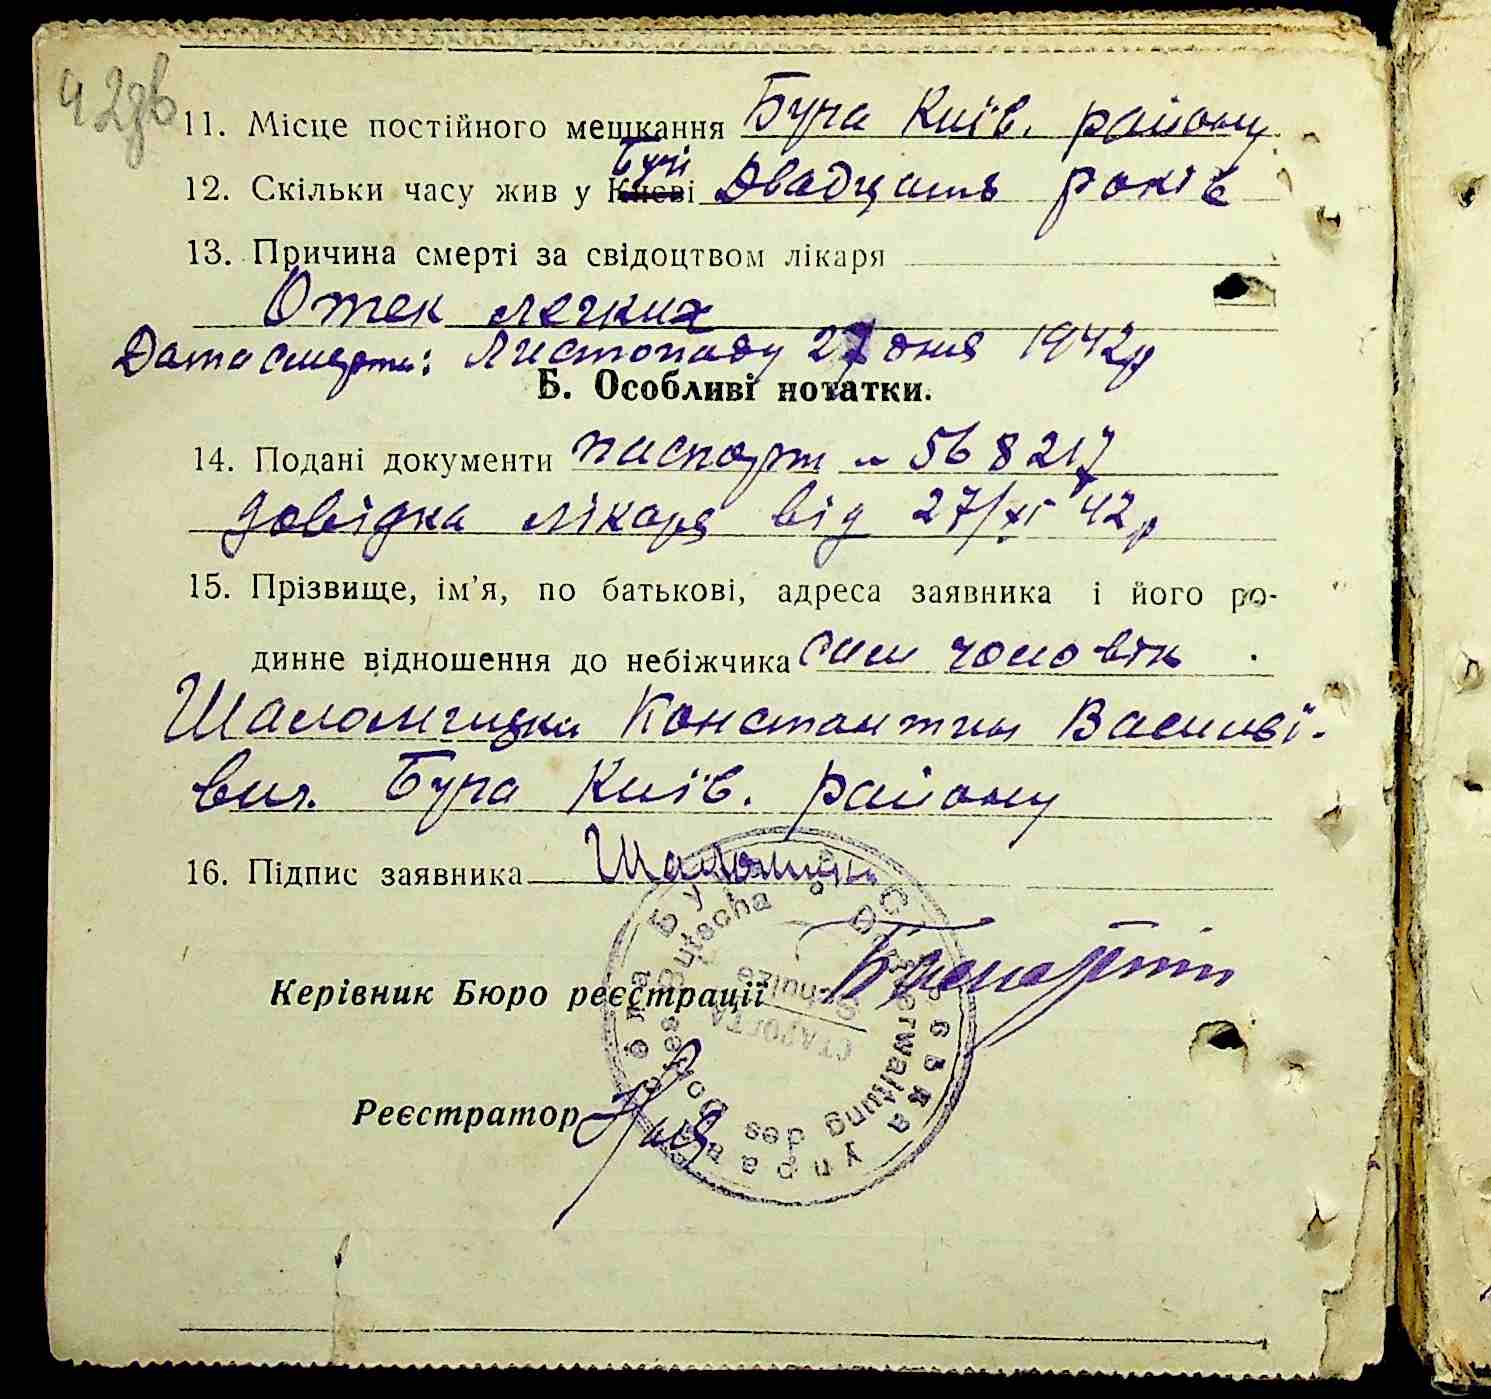 42зв
11. Місце постійного мешкання Буча Київ. району
Бучі
12. Скільки часу жив у Києві Двадцять років
13. Причина смерті за свідоцтвом лікаря
Отек легких
Дата смерти: Листопаду 27 дня 1942 р
Б. Особливі нотатки.
14. Подані документи паспорт № 568217
довідка лікаря від 27/XI 42 р
15. Прізвище, ім’я, по батькові, адреса заявника і його ро-
динне відношення до небіжчика чоловік
Константин Василеві-
вич. Буча Київ. району
16. Підпис заявника
Керівник Бюро реєстрації
Реєстратор
Сільська управа села Буча
Dorfverwaltung des Dorfes Butscha
СТАРОСТА
Schulze